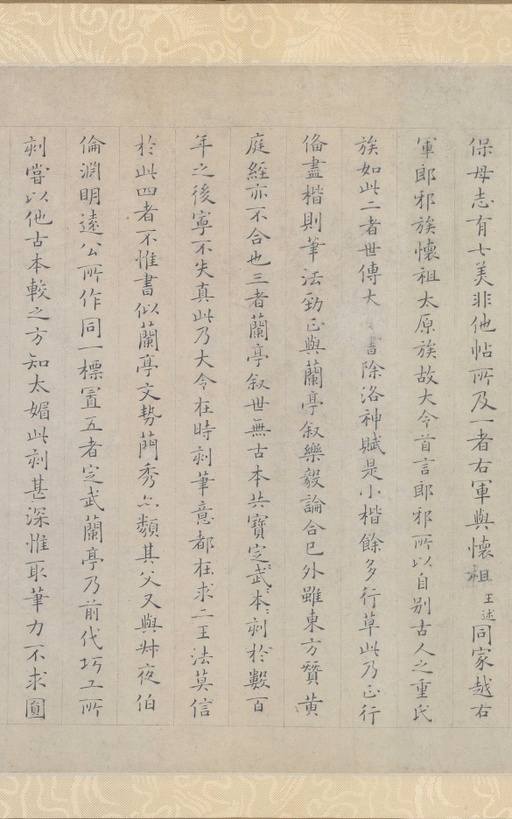 保母志有七美非他帖所及一者右軍與懷祖王述同家越右
軍郎邪族懷祖太原族故大令首言郎邪所以自別古人之重氏
族如此二者世傳大書除洛神賦是小楷餘多行草此乃正行
偹盡楷則筆法勁正與蘭亭叙樂毅論合已外雖東方贊黃
庭經亦不合也三者蘭亭叙世無古本共寶定武本刻於數百
年之後寧不失真此乃大令在時刻筆意都在求二王法莫信
於此四者不惟書似蘭亭文勢簡秀亦類其父又與叔夜伯
倫淵明遠公所作同一標置五者定武蘭亭乃前代巧工所
刻嘗以他古本較之方知太媚此刻甚深惟取筆力不求圓